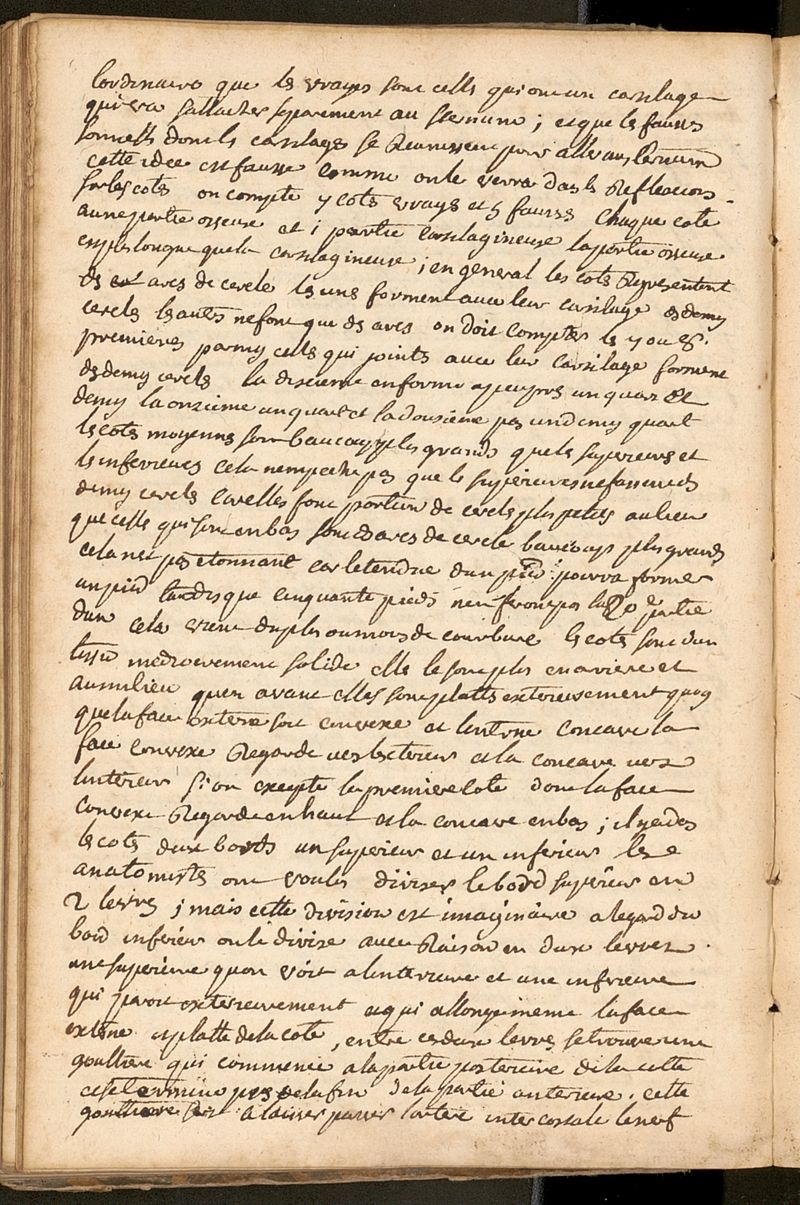 lordinaire que les vrayes sont celles qui ont un cartilage
qui va sattacher separement au sternum ; et que les fausses
sont celles dont les cartilages se reunissent pour aller au sternum
cette idee est fausse comme on le verra dans les Reflexions
sur les cotes on compte 7 cotes vrayes et 5 fausses chaque cote
a une partie osseuse et 1 partie cartilagineuse la partie osseuse
est plus longue que la cartilagineuse ; en general les cotes Representent
des arcs de cercle les unes forment avec leur cartilage des demy
cercles les autres ne font que des arcs on doit compter les 7 ou 8
premieres parmy celles qui joints avec leur cartilage forment
des demy cercles la dixieme en forme a peu pres un quart et
demy la onzieme un quart et la douzieme pas un demy quart
les cotes moyennes sont beaucoup plus grands que les superieures et
les inferieures cela nempeche pas que les superieures ne fassent des
demy cercles car elles font portion de cercles plus petits au lieu
que celles qui sont en bas sont des arcs de cercle beaucoup plus grands
cela nest pas etonnant car letendue dun pied pourra former
un pied tandis que cinquante pieds nen feront pas la 20e partie
dun cela vient du plus ou moins de courbure les cotes sont dun
tissu mediocrement solide elles le sont plus en arriere et
au milieu quen avant elles sont plattes exterieurement quoy
que la face externe soit convexe et linterne concave la
face convexe Regarde vers lexterieur et la concave vers
linterieur si on excepte la premiere cote dont la face
convexe Regarde en haut et la concave en bas ; il y a des
les cotes deux bords un superieur et un inferieur les
anatomistes ont voulu diviser le bord superieur en
2 levres ; mais cette division est imaginaire a legard du
bord inferieur on le divise avec Raison en deux levres
une superieure quon voit a linterieure et une inferieure
qui paroit exterieurement et qui allonge meme la face
externe et platte de la cote, entre ces deux levres se trouve une
gouttiere qui commence a la partie posterieure de la cotte
et se termine pres de la fin de la partie anterieure. cette
gouttiere sert a laisser passer lartere intercostale le nerf